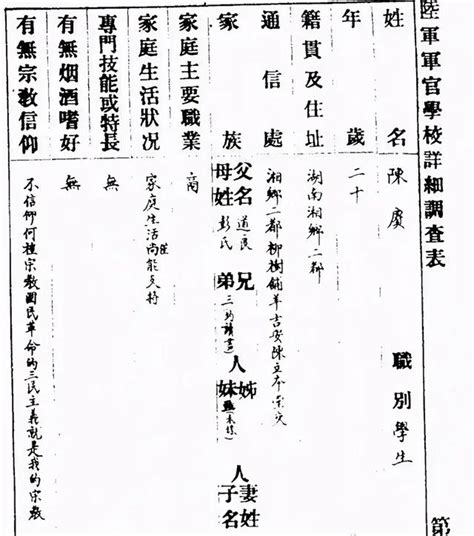 陸軍軍官學校詳細調查表
姓名 陳賡 職別 學生
年歲 二十
籍貫及住址 湖南湘鄉二都
通信處 湘鄉二都柳樹鋪羊吉安陳立本堂交
家族 父名 道良 母姓 彭氏 兄 弟 三 均讀書 人 姊 妹 人 妻姓 子名
家庭主要職業 商
家庭生活狀况 家庭生活尚能支持
專門技能或特長 無
有無烟酒嗜好 無
有無宗教信仰 不信仰何種宗教國民革命的三民主義就是我的宗教
第